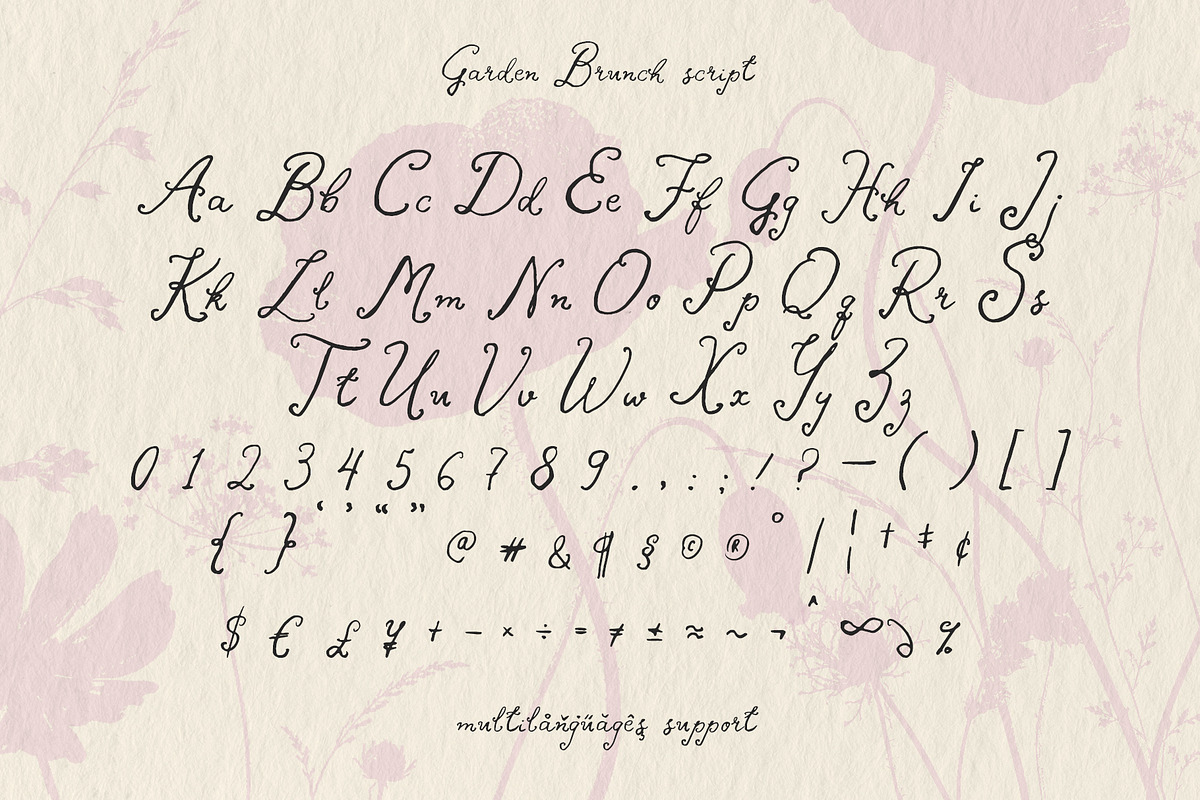 Garden Brunch script
Aa Bb Cc Dd Ee Ff Gg Hh Ii Jj
Kk Ll Mm Nn Oo Pp Qq Rr Ss
Tt Uu Vv Ww Xx Yy Zz
0 1 2 3 4 5 6 7 8 9 . , : ; ! ? — ( ) [ ]
{ } ‘ ’ “ ” @ # & ¶ § © ® ° / ¦ † ‡ ¢
$ € £ ¥ + − × ÷ = ≠ ± ≈ ~ ¬ ^ ∞ ∂ %
multilåňģűăgêş support